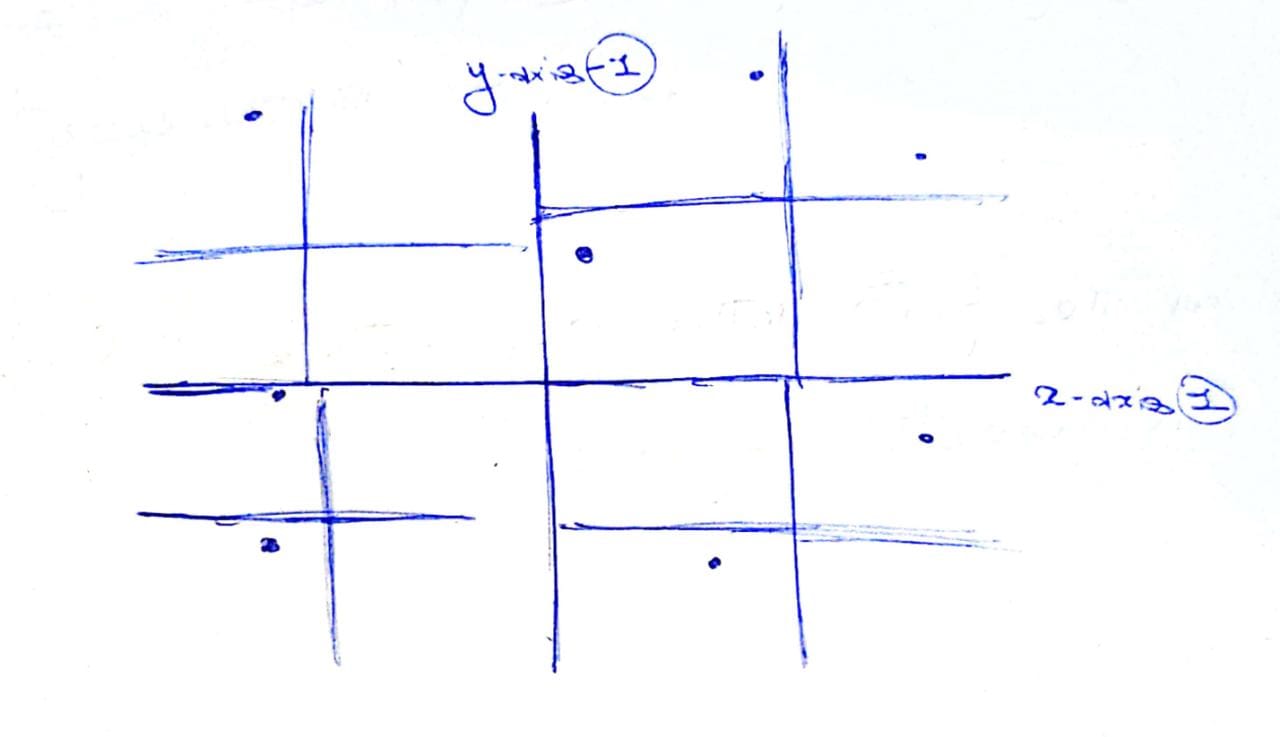 y-axis-1
x-axis 1